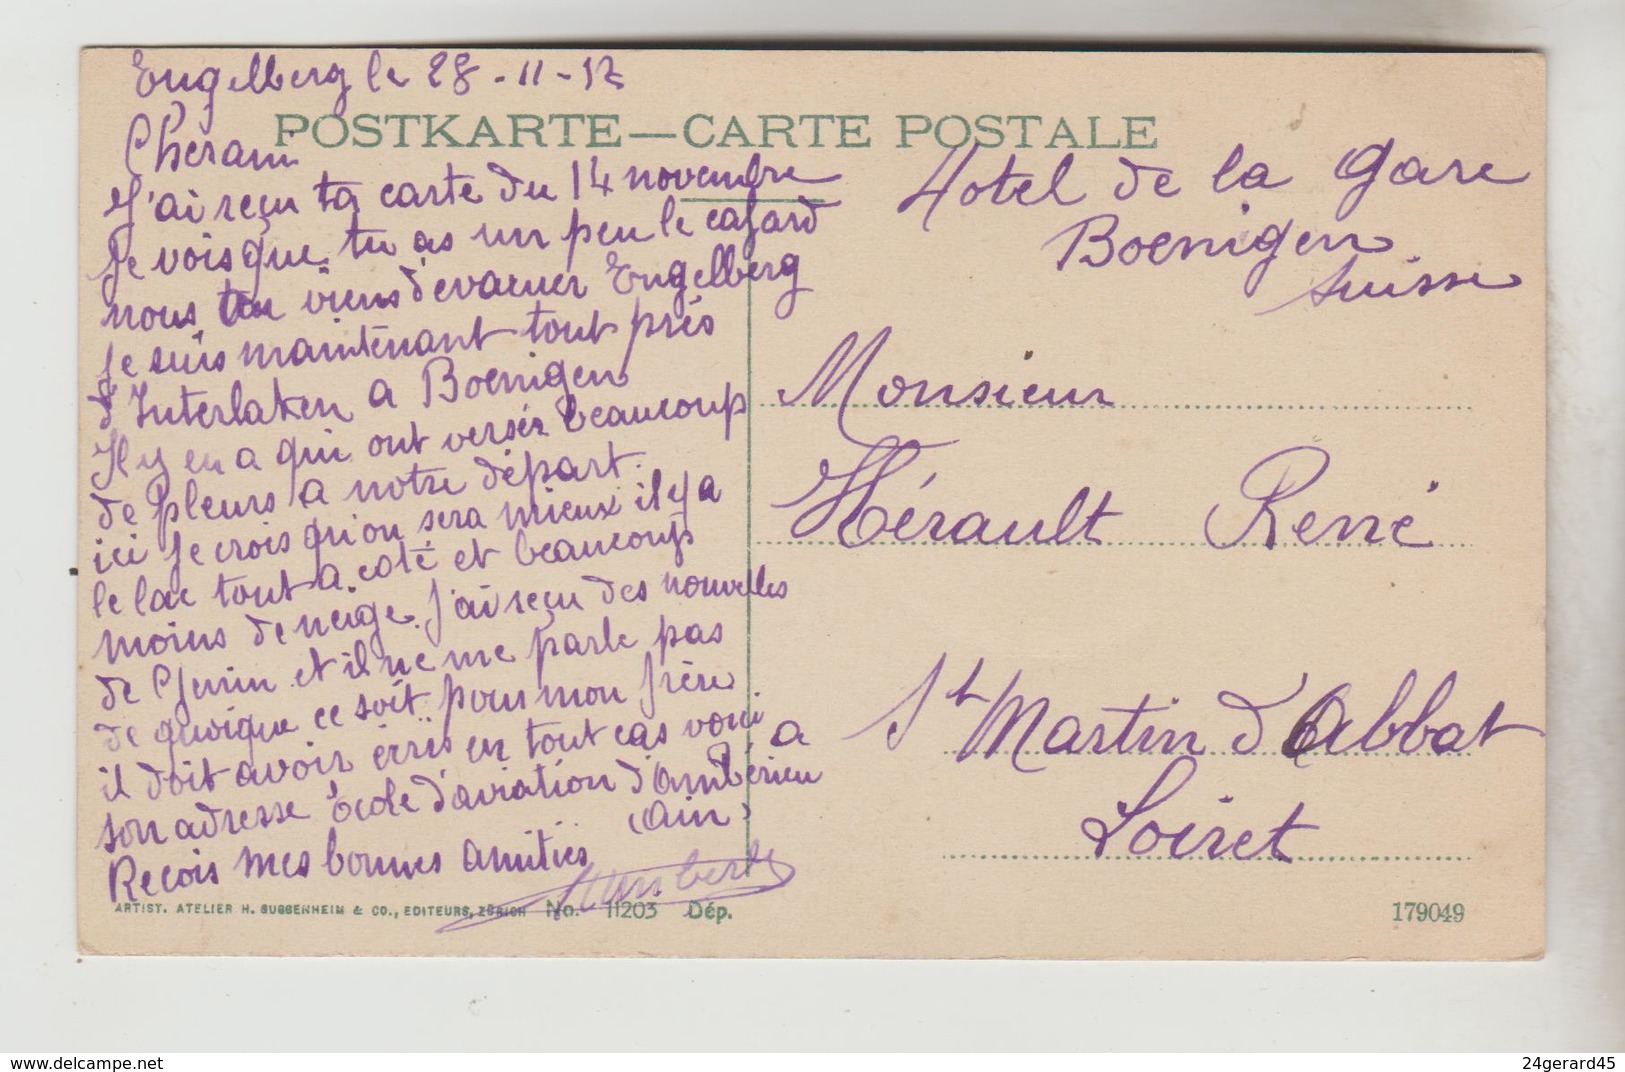 Engelberg le 28-11-17
POSTKARTE—CARTE POSTALE
Cher ami
J'ai reçu ta carte du 14 novembre
Je vois que tu as un peu le cafard
nous viens d'evacuer Engelberg
Je suis maintenant tout près
d'Interlaken a Boenigen
Il y en a qui ont versés beaucoup
de pleurs a notre départ.
ici je crois qu'on sera mieux il y a
le lac tout a coté et beaucoup
moins de neige. J'ai reçu des nouvelles
de et il ne me parle pas
de quoique ce soit pour mon frère
il doit avoir écris en tout cas voici
son adresse École d'aviation d'Ambérieu
(Ain)
Recois mes bonnes amitiés
Humbert
Hotel de la gare
Boenigen
Suisse
Monsieur
Hérault René
a
St Martin d'Abbat
Loiret
ARTIST. ATELIER H. GUGGENHEIM & CO., EDITEURS, ZÜRICH No. 11203 Dép.
179049
24gerard45
https://www.delcampe.net